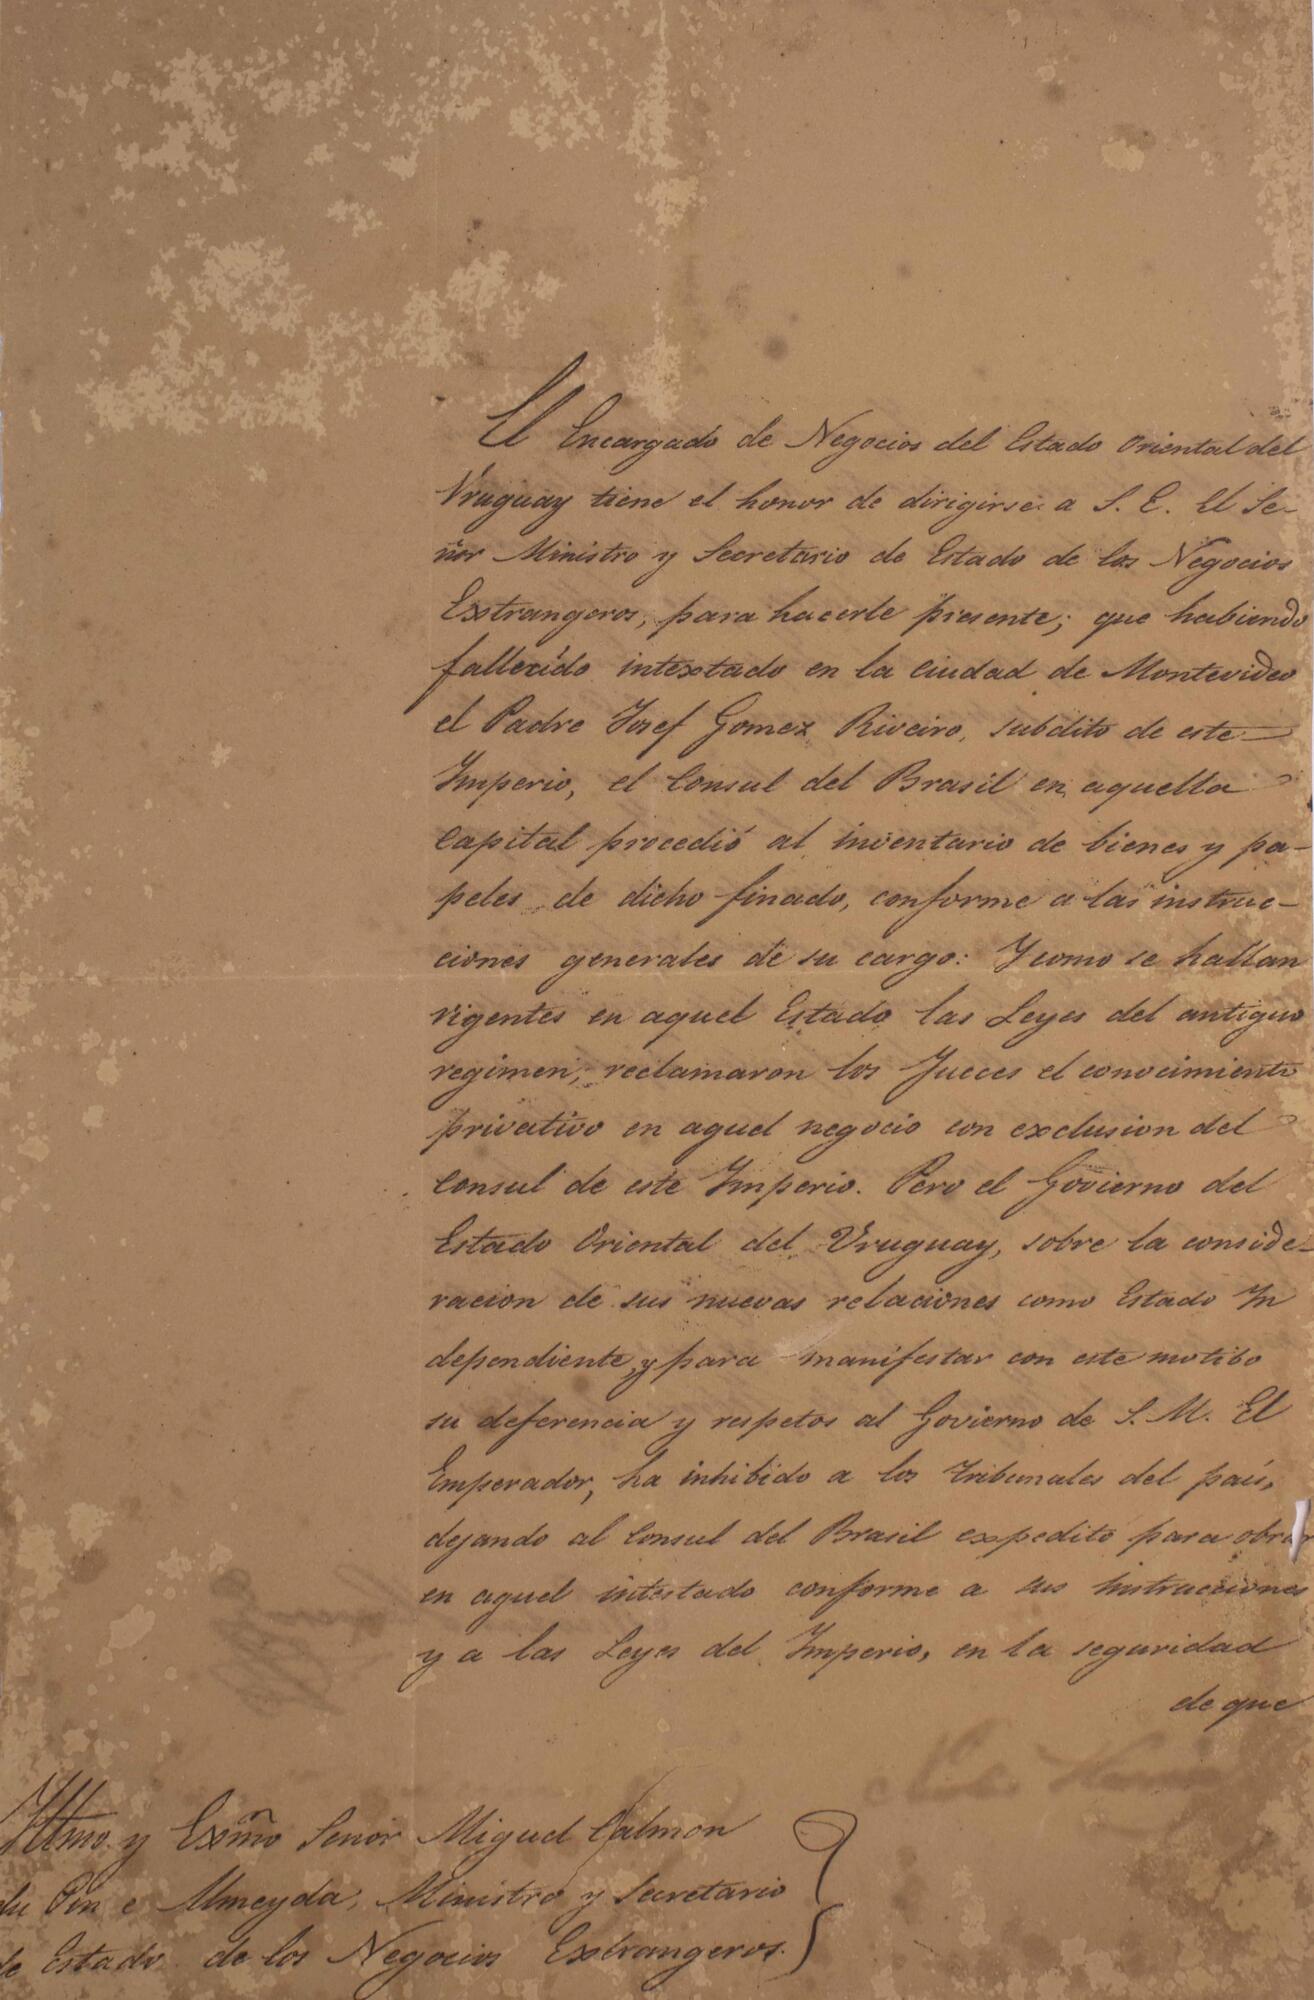 El Encargado de Negocios del Estado Oriental del
Vruguay tiene el honor de dirigirse a S. E. El Se-
ñor Ministro y Secretario de Estado de los Negocios
Extrangeros, para hacerle presente; que habiendo
fallecido intextado en la ciudad de Montevideo
el Padre Josef Gomez Riveiro, subdito de este
Imperio, el Consul del Brasil en aquella
capital procedió al inventario de bienes y pa-
peles de dicho finado, conforme a las instruc-
ciones generales de su cargo: Y como se hallan
vigentes en aquel Estado las Leyes del antiguo
regimen, reclamaron los Jueces el conocimiento
privativo en aquel negocio con exclusion del
Consul de este Imperio. Pero el Govierno del
Estado Oriental del Vruguay, sobre la conside-
racion de sus nuevas relaciones como Estado In
dependiente, y para manifestar con este motibo
su deferencia y respetos al Govierno de S. M. El
Emperador, ha inhibido a los tribunales del país,
dejando al Consul del Brasil expedito para obrar
en aquel intestado conforme a sus instrucciones
y a las Leyes del Imperio, en la seguridad
de que
Illmo. y Exmo Señor Miguel Calmon
du Pin e Almeyda, Ministro y Secretario
de Estado de los Negocios Extrangeros.